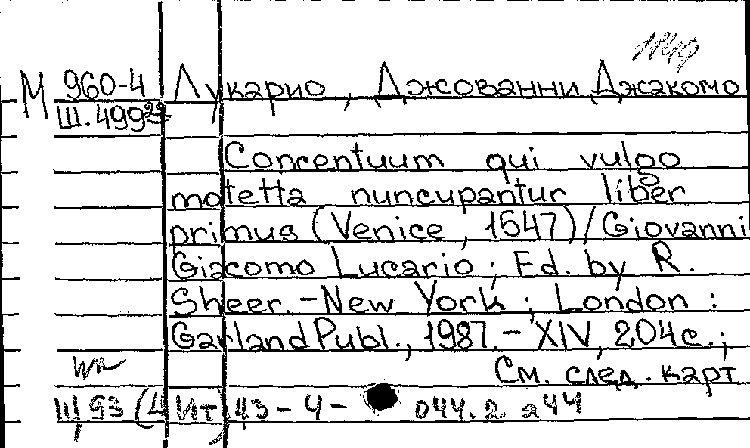 М 960-4 Лукарио, Джованни Джакомо
Ш.499
Concentuum qui vulgo
motetta nuncupantur liber
primus (Venice, 1547)/Giovanni
Giacomo Lucario; Ed. by R.
Sheer.-New York; London:
Garland Publ., 1987.- XIV, 204с.;
См. след. карт
Щ93(4Ит)43-4-